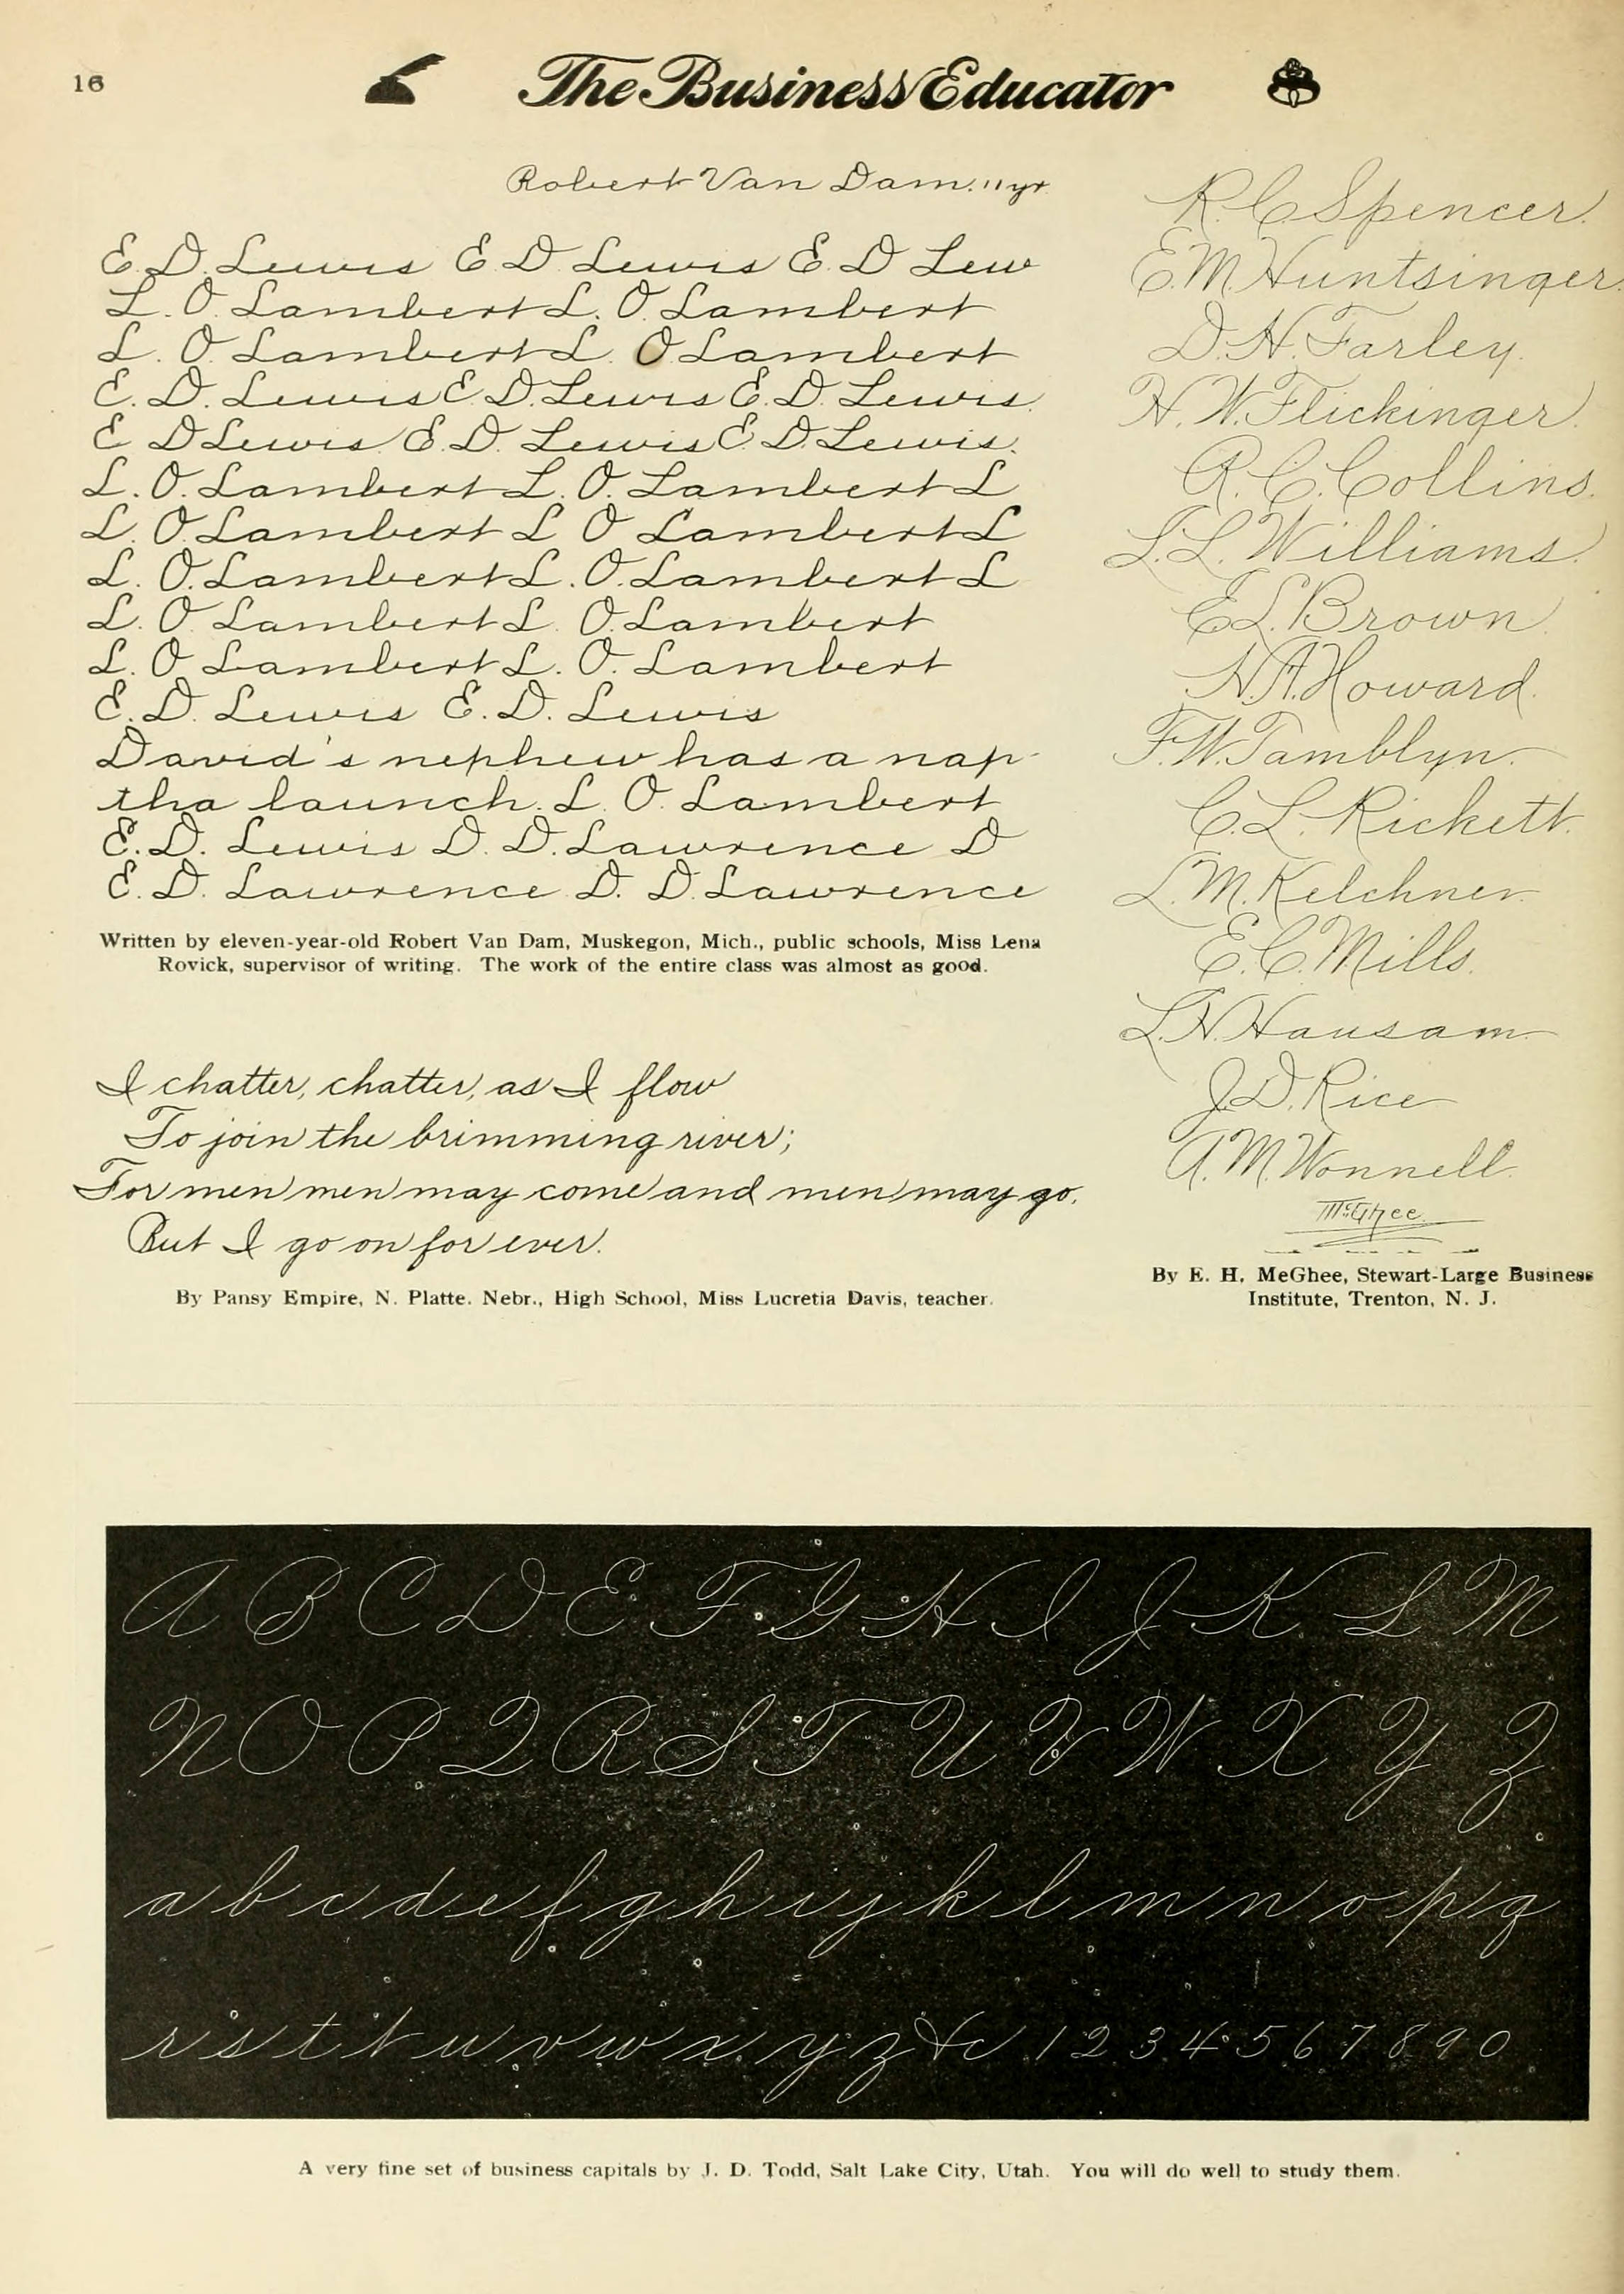 16
The Business Educator
Robert Van Dam. 11 yr.
E. D. Lewis E D Lewis E. D Lew
L. O. Lambert L. O. Lambert
L. O Lambert L. O Lambert
E. D. Lewis E D. Lewis E. D. Lewis.
E D Lewis E. D. Lewis E. D. Lewis.
L. O. Lambert L. O. Lambert L
L. O Lambert L O Lambert L
L. O. Lambert L. O. Lambert L
L. O Lambert L. O. Lambert
L. O Lambert L. O. Lambert
E. D. Lewis E. D. Lewis
David's nephew has a nap-
tha launch. L. O. Lambert
E. D. Lewis D. D. Lawrence D
E. D. Lawrence D. D. Lawrence
Written by eleven-year-old Robert Van Dam, Muskegon, Mich., public schools, Miss Lena
Rovick, supervisor of writing. The work of the entire class was almost as good.
I chatter, chatter, as I flow
To join the brimming river;
For men men may come and men may go,
But I go on for ever.
By Pansy Empire, N. Platte. Nebr., High School, Miss Lucretia Davis, teacher.
R. C. Spencer.
E. M. Huntsinger.
D. H. Farley.
H. W. Flickinger.
R. C. Collins.
L. L. Williams.
E. L. Brown.
H. A. Howard.
F. W. Tamblyn.
C. L. Rickett.
L. M. Kelchner.
E. C. Mills.
L. H. Hausam.
J. D. Rice
A. M. Wonnell.
McGhee.
By E. H. MeGhee, Stewart-Large Business
Institute, Trenton, N. J.
A B C D E F G H I J K L M
N O P Q R S T U V W X Y Z
a b c d e f g h i j k l m n o p q
r s t t u v w x y z & c 1 2 3 4 5 6 7 8 9 0
A very fine set of business capitals by J. D. Todd, Salt Lake City, Utah. You will do well to study them.